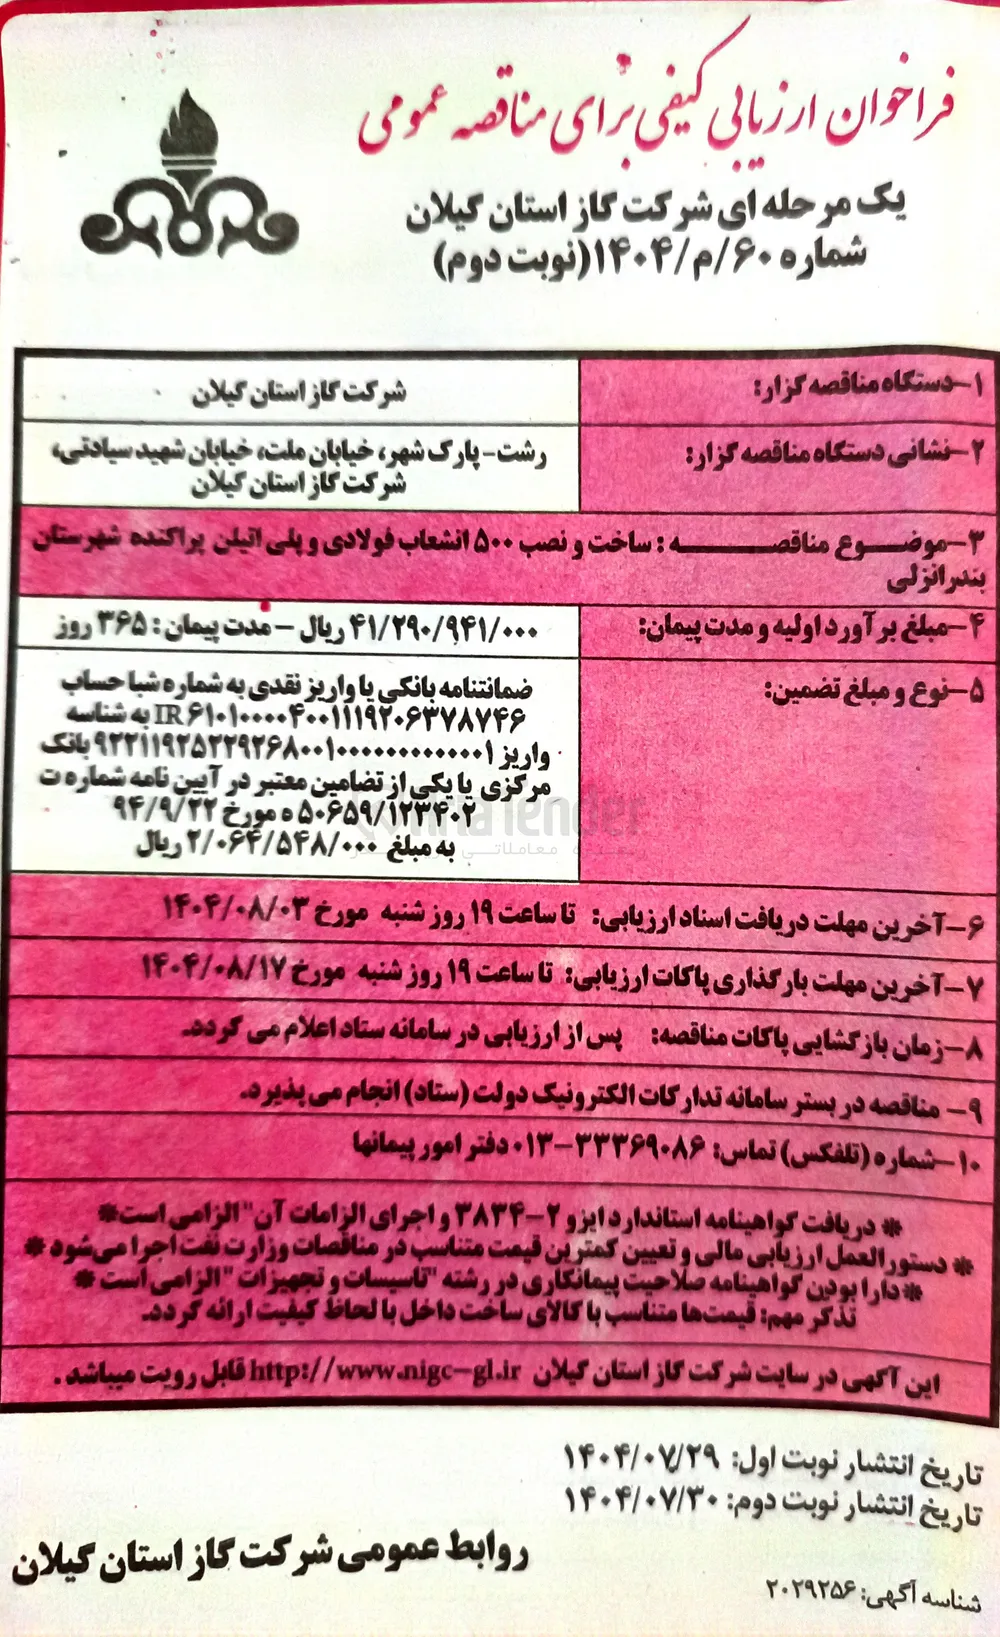 فراخوان ارزیابی کیفی برای مناقصه عمومی
یک مرحله ای شرکت گاز استان گیلان
شماره ۶۰/م/۱۴۰۴(نوبت دوم)
۱-دستگاه مناقصه گزار:
شرکت گاز استان گیلان
۲-نشانی دستگاه مناقصه گزار:
رشت-پارک شهر، خیابان ملت، خیابان شهید سیادتی،
شرکت گاز استان گیلان
۳-موضوع مناقصه : ساخت و نصب ۵۰۰ انشعاب فولادی و پلی اتیلن پراکنده شهرستان
بندرانزلی
۴-مبلغ برآورد اولیه و مدت پیمان:
۴۱/۲۹۰/۹۴۱/۰۰۰ ریال - مدت پیمان : ۳۶۵ روز
۵-نوع و مبلغ تضمین:
ضمانتنامه بانکی یا واریز نقدی به شماره شبا حساب
IR۶۱۰۱۰۰۰۰۴۰۰۱۱۱۹۲۰۶۳۷۸۷۴۶ به شناسه
واریز ۹۲۲۱۱۹۲۵۲۲۹۲۶۸۰۰۱۰۰۰۰۰۰۰۰۰۰۰۰۱ بانک
مرکزی یا یکی از تضامین معتبر در آیین نامه شماره ت
۵۰۶۵۹/۱۲۳۴۰۲ ه مورخ ۹۴/۹/۲۲
به مبلغ ۲/۰۶۴/۵۴۸/۰۰۰ ریال
۶-آخرین مهلت دریافت اسناد ارزیابی: تا ساعت ۱۹ روز شنبه مورخ ۱۴۰۴/۰۸/۰۳
۷-آخرین مهلت بارگذاری پاکات ارزیابی: تا ساعت ۱۹ روز شنبه مورخ ۱۴۰۴/۰۸/۱۷
۸-زمان بازگشایی پاکات مناقصه: پس از ارزیابی در سامانه ستاد اعلام می گردد.
۹- مناقصه در بستر سامانه تدارکات الکترونیک دولت (ستاد) انجام می پذیرد.
۱۰-شماره (تلفکس) تماس: ۳۳۳۶۹۰۸۶-۰۱۳ دفتر امور پیمانها
* دریافت گواهینامه استاندارد ایزو ۲-۳۸۳۴ و اجرای الزامات آن" الزامی است*
* دستورالعمل ارزیابی مالی و تعیین کمترین قیمت متناسب در مناقصات وزارت نفت اجرا می‌شود *
*دارا بودن گواهینامه صلاحیت پیمانکاری در رشته "تاسیسات و تجهیزات "الزامی است *
تذکر مهم: قیمت‌ها متناسب با کالای ساخت داخل با لحاظ کیفیت ارائه گردد.
این آگهی در سایت شرکت گاز استان گیلان http://www.nigc-gl.ir قابل رویت میباشد .
تاریخ انتشار نوبت اول: ۱۴۰۴/۰۷/۲۹
تاریخ انتشار نوبت دوم: ۱۴۰۴/۰۷/۳۰
روابط عمومی شرکت گاز استان گیلان
شناسه آگهی: ۲۰۲۹۲۵۶